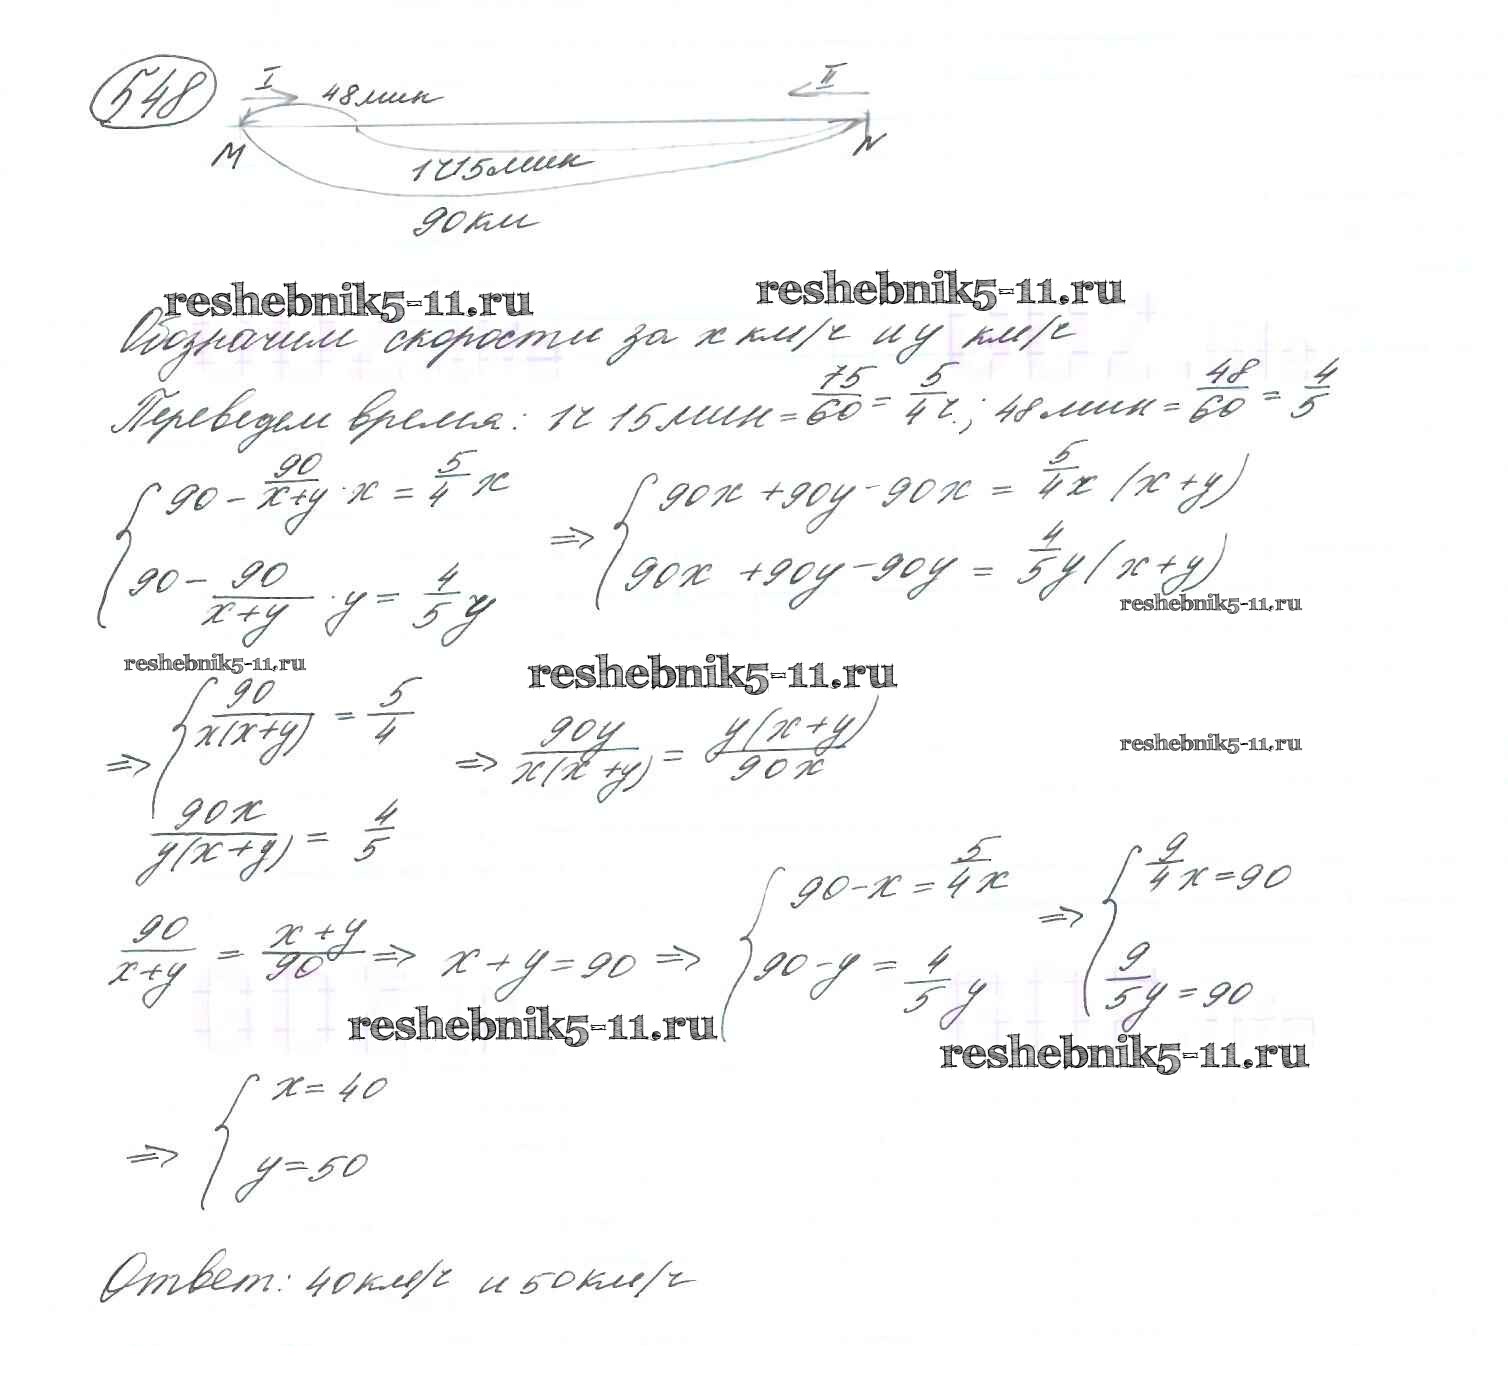 548
I 48 мин II
M N
1 ч 15 мин
90 км
reshebnik5-11.ru reshebnik5-11.ru
Обозначим скорости за x км/ч и y км/ч
Переведем время: 1 ч 15 мин = 75/60 = 5/4 ч.; 48 мин = 48/60 = 4/5
{ 90 - 90/(x+y) · x = 5/4 x ⇒ { 90x + 90y - 90x = 5/4 x (x+y)
90 - 90/(x+y) · y = 4/5 y 90x + 90y - 90y = 4/5 y (x+y)
reshebnik5-11.ru
reshebnik5-11.ru reshebnik5-11.ru
⇒ { 90/(x(x+y)) = 5/4 ⇒ 90y/(x(x+y)) = y(x+y)/(90x)
reshebnik5-11.ru
90x/(y(x+y)) = 4/5
90/(x+y) = (x+y)/90 ⇒ x + y = 90 ⇒ { 90 - x = 5/4 x ⇒ { 9/4 x = 90
90 - y = 4/5 y 9/5 y = 90
reshebnik5-11.ru reshebnik5-11.ru
⇒ { x = 40
y = 50
Ответ: 40 км/ч и 50 км/ч